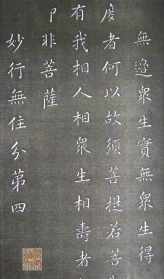 無邊衆生實無衆生得
度者何以故須菩提若菩
有我相人相衆生相壽者
即非菩薩
妙行無住分第四